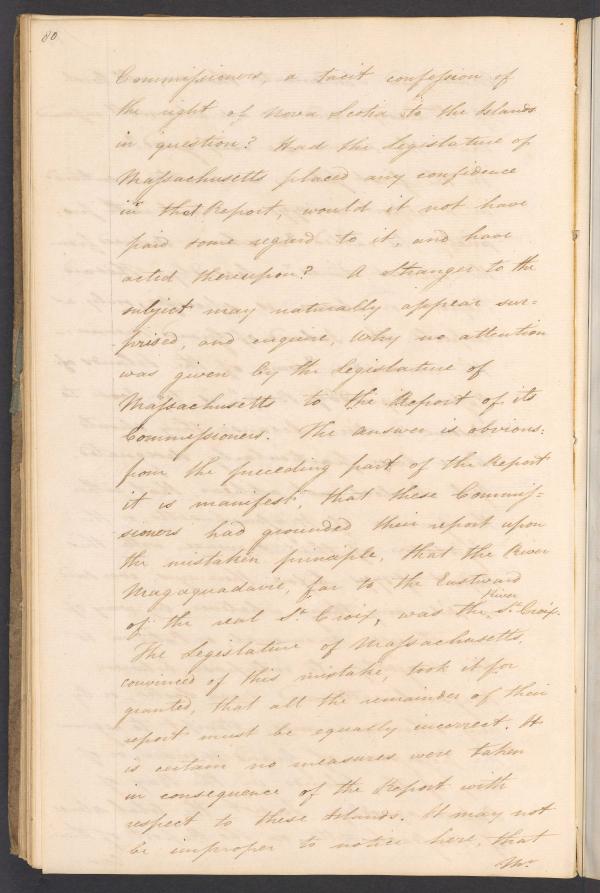 80
Commissioners, a tacit confession of
the right of Nova Scotia to the Islands
in question? Had the Legislature of
Massachusetts placed any confidence
in that Report, would it not have
paid some regard to it, and have
acted thereupon? A Stranger to the
subject may naturally appear sur=
prised, and enquire, Why no attention
was given by the Legislature of
Massachusetts to the Report of its
Commissioners. The answer is obvious:
from the preceding part of the Report
it is manifest, that these Commis=
sioners had grounded their report upon
the mistaken principle, that the River
Magaquadavic, far to the Eastward
River
of the real St. Croix, was the St. Croix.
The Legislature of Massachusetts,
convinced of this mistake, took it for
granted, that all the remainder of their
report must be equally incorrect. It
is certain no measures were taken
in consequence of the Report with
respect to these Islands. It may not
be improper to notice here, that
Mr.